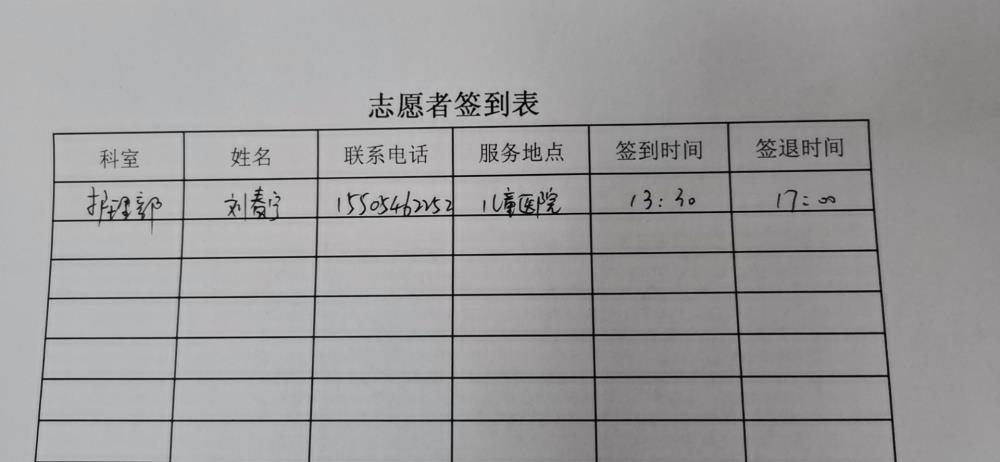 志愿者签到表
科室 姓名 联系电话 服务地点 签到时间 签退时间
护理部 刘春宁 15505462252 儿童医院 13:30 17:00